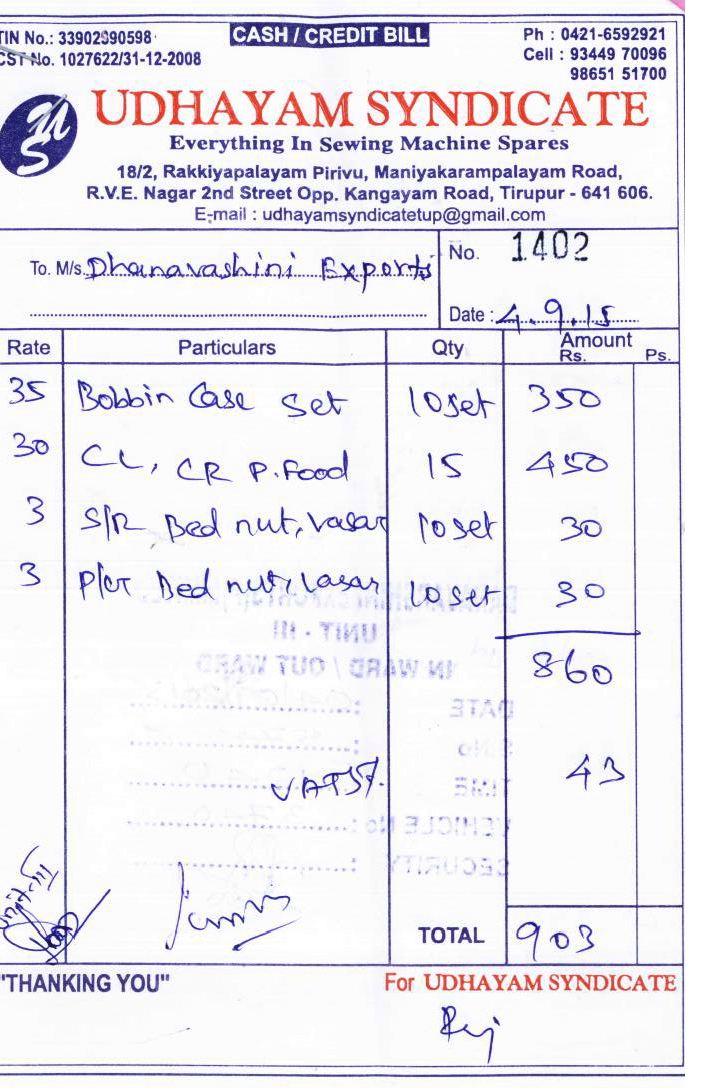 TIN No.: 33902990598
CASH / CREDIT BILL
Ph : 0421-6592921
CST No. 1027622/31-12-2008
Cell : 93449 70096
98651 51700
UDHAYAM SYNDICATE
Everything In Sewing Machine Spares
18/2, Rakkiyapalayam Pirivu, Maniyakarampalayam Road,
R.V.E. Nagar 2nd Street Opp. Kangayam Road, Tirupur - 641 606.
E-mail : udhayamsyndicatetup@gmail.com
To. M/s. Dhanavashini Exports
No. 1402
Date : 4.9.15
Rate Particulars Qty Amount Rs. Ps.
35 Bobbin Case Set 10 set 350
30 CL, CR P.Food 15 450
3 S/R Bed nut, vasar 10 set 30
3 P/CT Bed nut, vasar 10 set 30
860
UNIT - III
IN WARD / OUT WARD
DATE :
S.No :
VAT 5%. 43
TIME :
VEHICLE No :
SECURITY :
Unit-III
TOTAL 903
"THANKING YOU" For UDHAYAM SYNDICATE